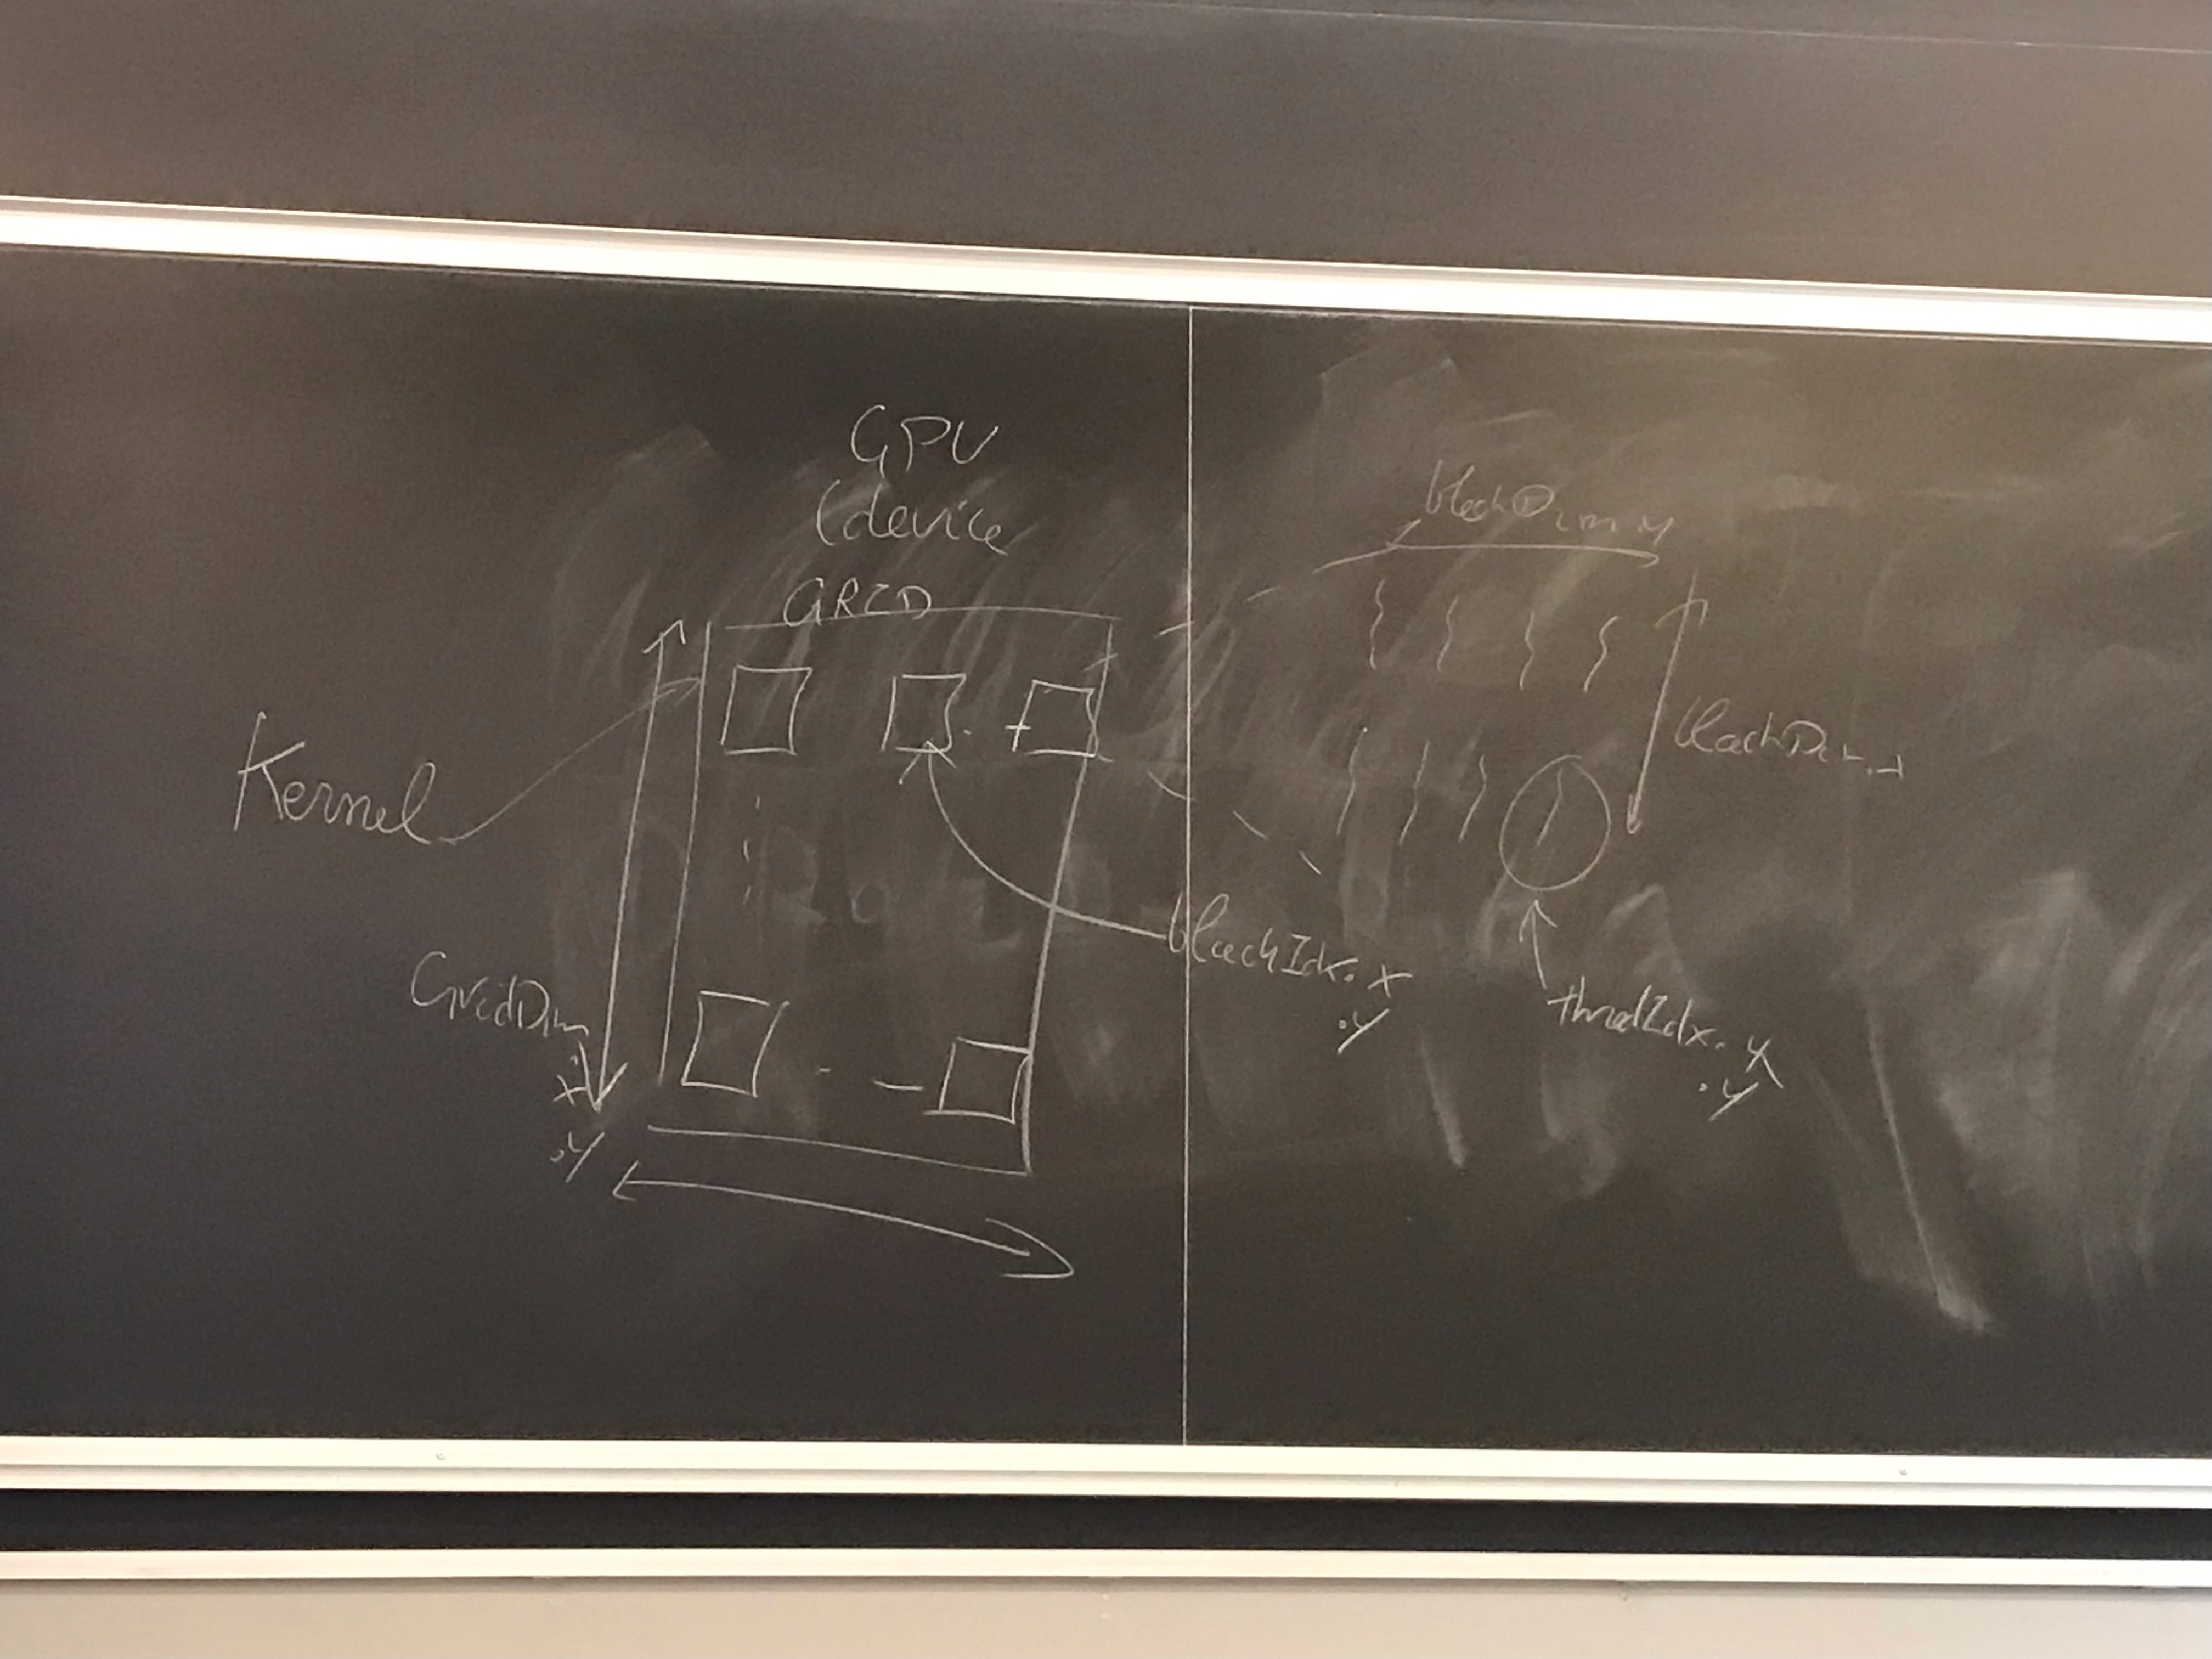 GPU
(device
GRID
Kernel
GridDim
x
.y
blockIdx.x
.y
blockDim.y
blockDim.x
thredIdx.x
.y